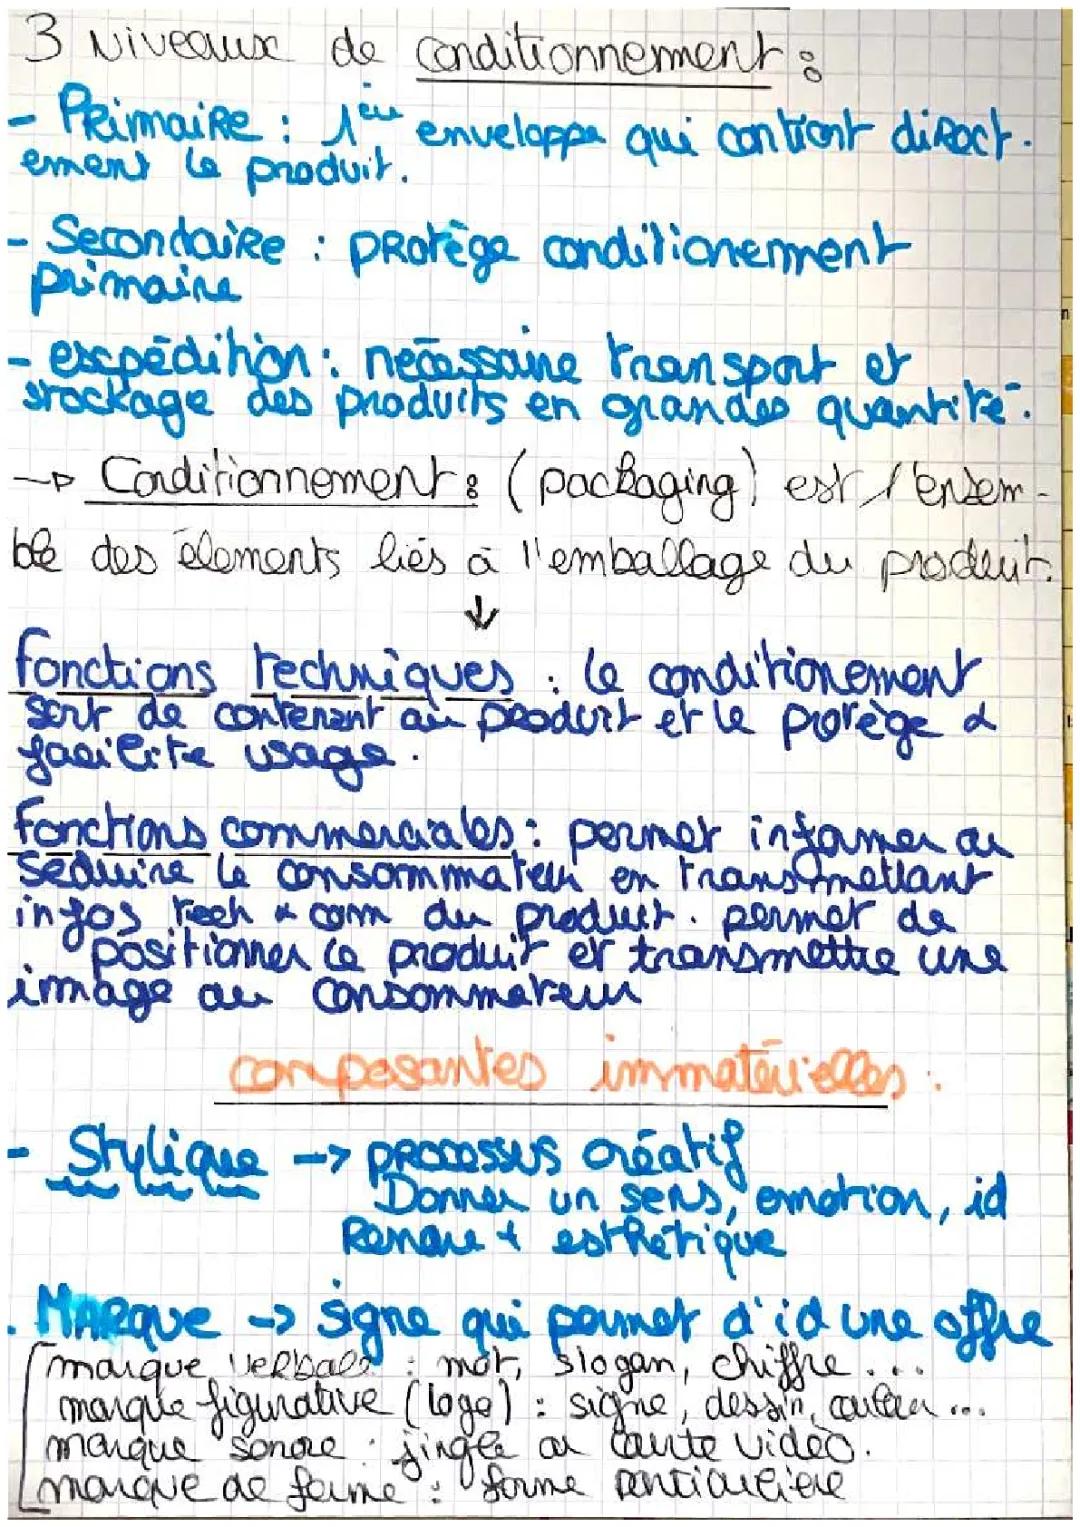 3 Niveaux de conditionnement :
- Primaire : 1ère enveloppe qui contient direct-
ement le produit.
- Secondaire : protège conditionement
primaire
- expédition : nécessaire transport et
stockage des produits en grandes quantité.
→ Conditionnement : (packaging) est l'ensem-
ble des élements liés à l'emballage du produit.
↓
fonctions techniques : le conditionement
sert de contenant au produit et le protège &
facilite usage.
fonctions commerciales : permet informer ou
séduire le consommateur en transmettant
infos tech & com du produit. permet de
positionner le produit et transmettre une
image au consommateur
composantes immatérielles :
- Stylique -> processus créatif
Donner un sens, emotion, id
Rendre + esthétique
. Marque -> signe qui permet d'id une offre
marque verbale : mot, slogan, chiffre...
marque figurative (logo) : signe, dessin, couleur...
marque sonore : jingle ou courte vidéo.
marque de forme : forme particulière